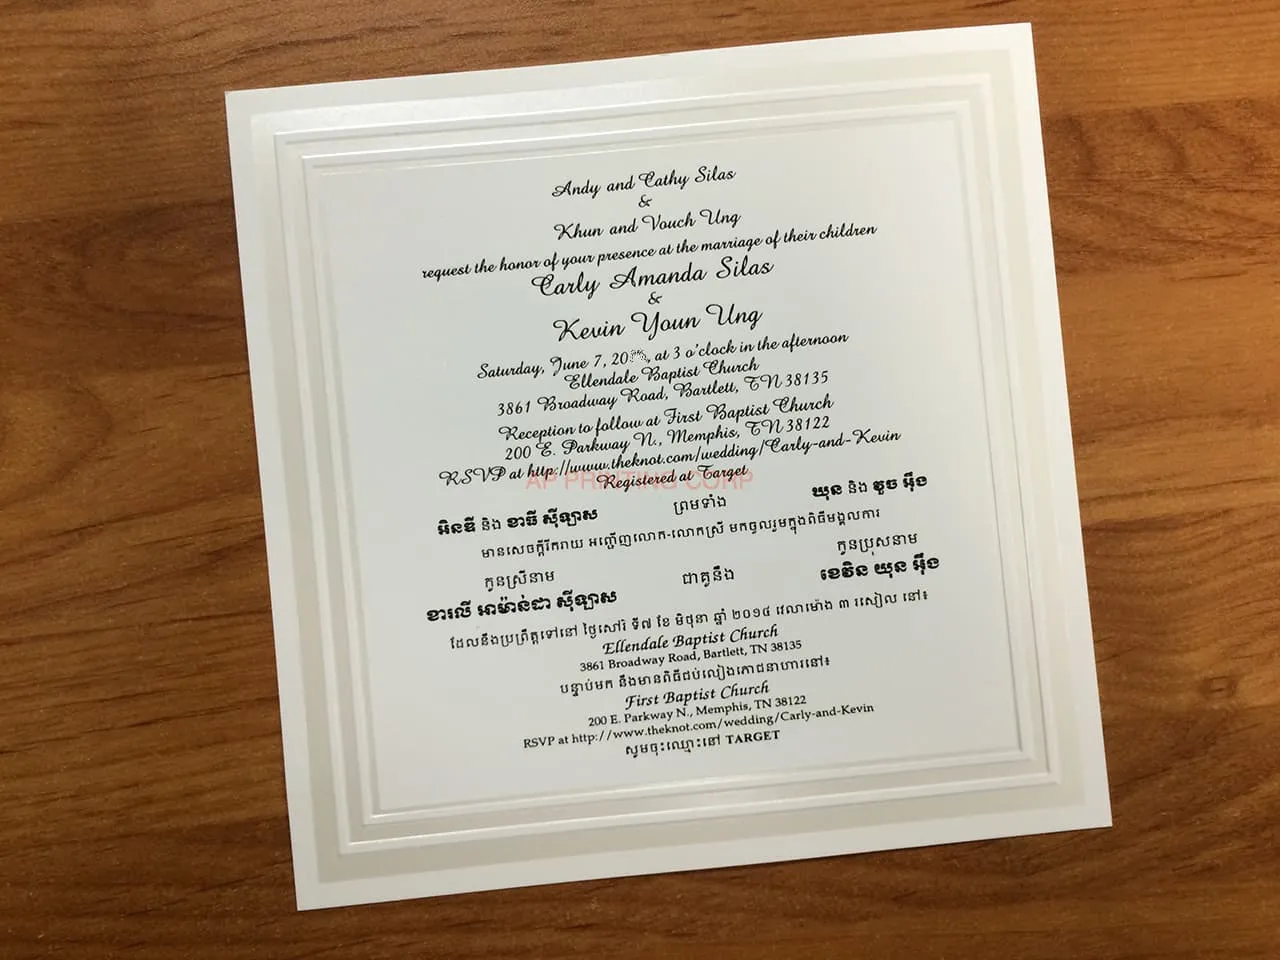 Andy and Cathy Silas
&
Khun and Vouch Ung
request the honor of your presence at the marriage of their children
Carly Amanda Silas
&
Kevin Youn Ung
Saturday, June 7, 20 at 3 o'clock in the afternoon
Ellendale Baptist Church
3861 Broadway Road, Bartlett, TN 38135
Reception to follow at First Baptist Church
200 E. Parkway N., Memphis, TN 38122
RSVP at http://www.theknot.com/wedding/Carly-and-Kevin
Registered at Target
AP PRINTING CORP
អិនឌី និង ខាធី ស៊ីឡាស ព្រមទាំង ឃុន និង វូច អ៊ឹង
មានសេចក្តីរីករាយ អញ្ជើញលោក-លោកស្រី មកចូលរួមក្នុងពិធីមង្គលការ
កូនស្រីនាម ជាគូនឹង កូនប្រុសនាម
ខារលី អាម៉ាន់ដា ស៊ីឡាស ខេវិន យុន អ៊ឹង
ដែលនឹងប្រព្រឹត្តទៅនៅ ថ្ងៃសៅរ៍ ទី៧ ខែ មិថុនា ឆ្នាំ ២០១៤ វេលាម៉ោង ៣ រសៀល នៅ៖
Ellendale Baptist Church
3861 Broadway Road, Bartlett, TN 38135
បន្ទាប់មក នឹងមានពិធីជប់លៀងភោជនាហារនៅ៖
First Baptist Church
200 E. Parkway N., Memphis, TN 38122
RSVP at http://www.theknot.com/wedding/Carly-and-Kevin
សូមចុះឈ្មោះនៅ TARGET